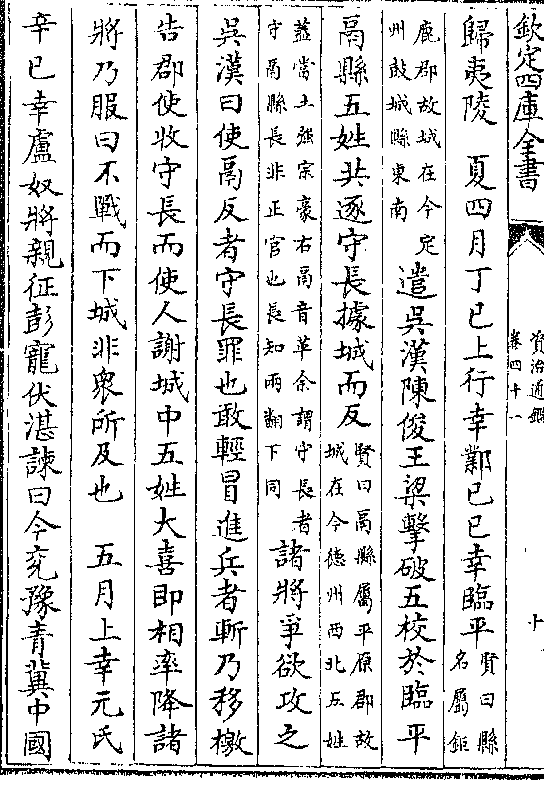 欽定四庫全書
資治通鑑
卷四十一
十
歸夷陵　夏四月丁巳上行幸鄴己巳幸臨平賢曰縣名屬鉅
鹿郡故城在今定州鼓城縣東南遣吳漢陳俊王梁擊破五校於臨平
鬲縣五姓共逐守長據城而反賢曰鬲縣屬平原郡故城在今德州西北五姓
蓋當土強宗豪右鬲音革余謂守長者守鬲縣長非正官也長知兩翻下同諸將爭欲攻之
吳漢曰使鬲反者守長罪也敢輕冒進兵者斬乃移檄
告郡使收守長而使人謝城中五姓大喜即相率降諸
將乃服曰不戰而下城非衆所及也　五月上幸元氏
辛巳幸盧奴將親征彭寵伏湛諫曰今兖豫青冀中國